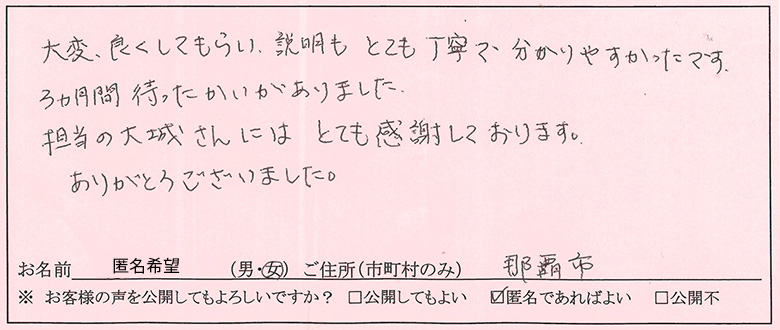 大変、良くしてもらい、説明も とても丁寧で 分かりやすかったです。
3ヵ月間 待ったかいがありました。
担当の大城さんには とても感謝しております。
ありがとうございました。
お名前 匿名希望 (男・女) ご住所(市町村のみ) 那覇市
※ お客様の声を公開してもよろしいですか? □公開してもよい ☑匿名であればよい □公開不